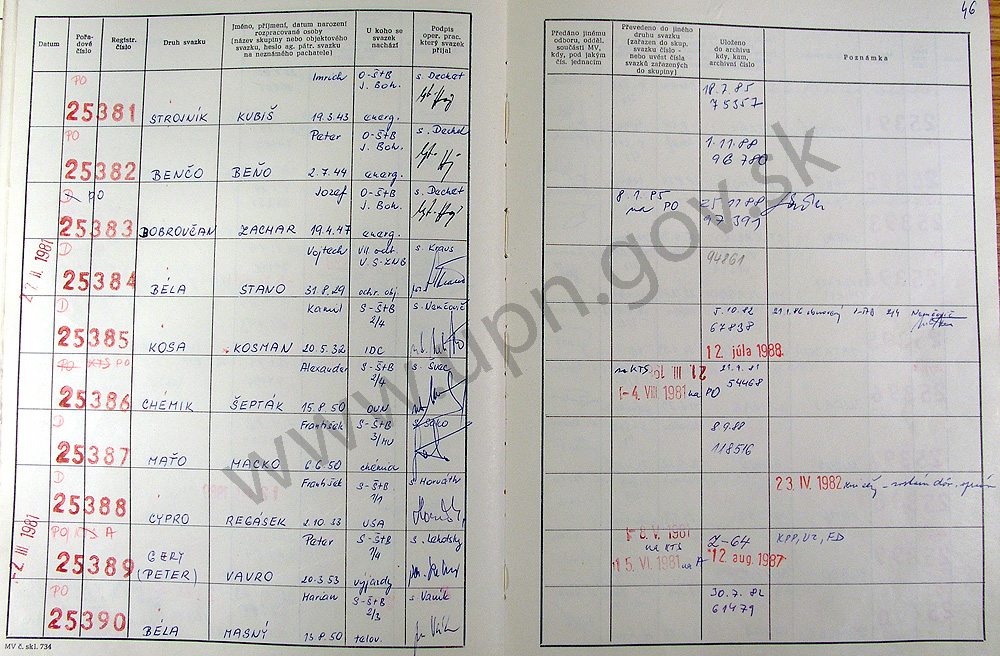 46
Datum
Pořadové číslo
Registr. číslo
Druh svazku
Jméno, příjmení, datum narození rozpracované osoby (název skupiny nebo objektového svazku, heslo ag. pátr. svazku na neznámého pachatele)
U koho se svazek nachází
Podpis oper. prac. který svazek přijal
Předáno jinému odboru, odděl. součásti MV, kdy, pod jakým čís. jednacím
Převedeno do jiného druhu svazku (zařazen do skup. svazku číslo - nebo uvést čísla svazků zařazených do skupiny)
Uloženo do archivu kdy, kam, archivní číslo
Poznámka
PO Imrich O-ŠtB s. Dechet
J. Boh.
25381 STROJNÍK KUBIŠ 19.3.43 energ.
18.7.85
75357
PO Peter O-ŠtB s. Dechet
J. Boh.
25382 BENČO BEŇO 2.7.44 energ.
1.11.88
96780
D PO Jozef O-ŠtB s. Dechet
J. Boh.
25383 DOBROVČAN ZACHAR 19.4.47 energ.
8.1.85 na PO
25.11.88
97391
II. 1981
D Vojtech VII. odb. s. Kraus
V. S-ZNB
25384 BÉLA STANO 31.8.29 ochr. obj.
94861
D Kamil S-ŠtB s. Nemčovič
2/4
25385 KOSA KOSMAN 20.5.32 IDC
5.10.82
67838
12. júla 1988
21.1.86 2/4 Nemčovič
PO KTS PO Alexander S-ŠtB s. Švec
2/4
25386 CHÉMIK ŠEPTÁK 15.8.50 OVN
na KTS 21. III. 19
-4. VIII. 1981 na PO
21.9.81
54468
D František S-ŠtB s. Sako
3/HU
25387 MAŤO MACKO 6.6.50 chémia
8.9.88
118516
D František S-ŠtB s. Horváth
1/1
25388 CYPRO REGÁSEK 2.10.33 USA
23. IV. 1982
-2. III. 1981
PO KTS A Peter S-ŠtB s. Lehotsky
1/4
25389 GERY (PETER) VAVRO 20.3.53 výjazdy
8. V. 1981 na KTS
15. VI. 1981 na A
Z-64
12. aug. 1987
KPP, UZ, FD
PO Marian S-ŠtB s. Vaník
2/3
25390 BÉLA MASNÝ 13.8.50 telov.
30.7.82
61479
MV č. skl. 734
www.upn.gov.sk